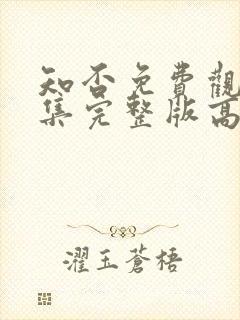 知否免費觀
集完整版高
濯玉蒼梧